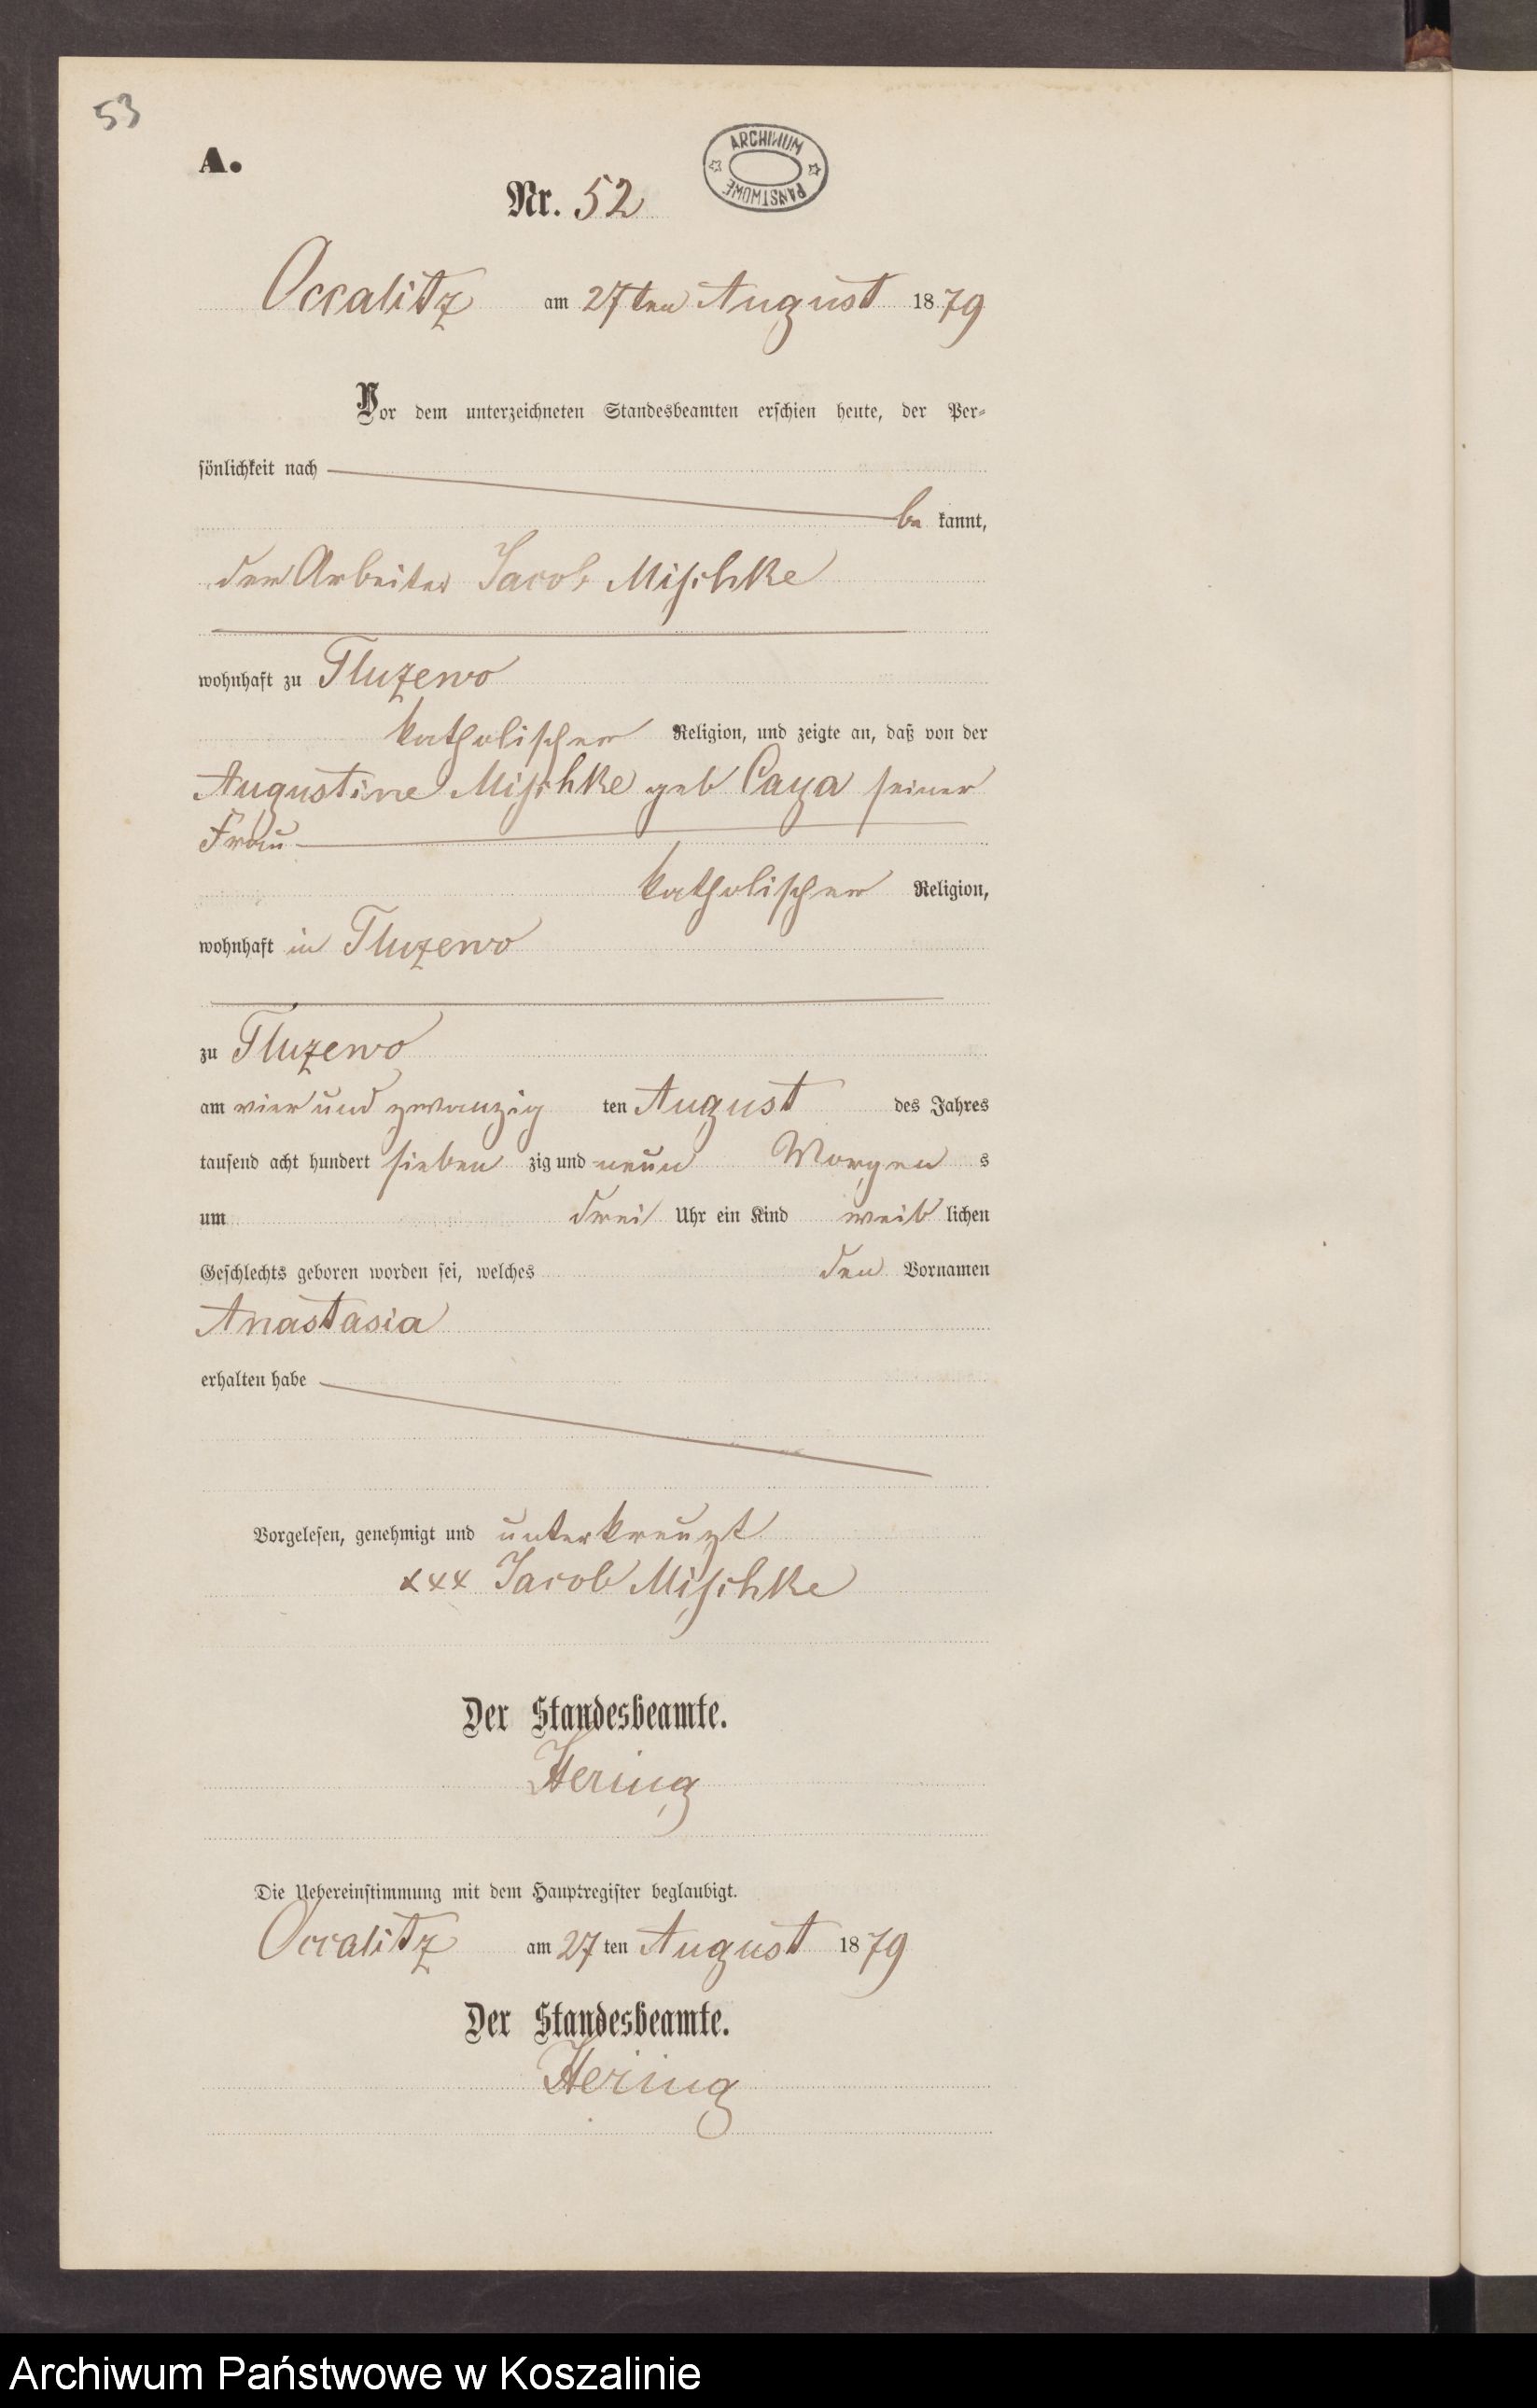 53
A.
ARCHIWUM PAŃSTWOWE
Nr. 52
Occalitz am 27ten August 1879
Vor dem unterzeichneten Standesbeamten erschien heute, der Per-
sönlichkeit nach
be kannt,
der Arbeiter Jacob Mischke
wohnhaft zu Tluzewo
katholischer Religion, und zeigte an, daß von der
Augustine Mischke geb Caya seiner
Frau
katholischer Religion,
wohnhaft in Tluzewo
zu Tluzewo
am vier und zwanzig ten August des Jahres
tausend acht hundert sieben zig und neun Morgen s
um drei Uhr ein Kind weib lichen
Geschlechts geboren worden sei, welches den Vornamen
Anastasia
erhalten habe
Vorgelesen, genehmigt und unterkreuzt
xxx Jacob Mischke
Der Standesbeamte.
Hering
Die Uebereinstimmung mit dem Hauptregister beglaubigt.
Occalitz am 27 ten August 1879
Der Standesbeamte.
Hering
Archiwum Państwowe w Koszalinie